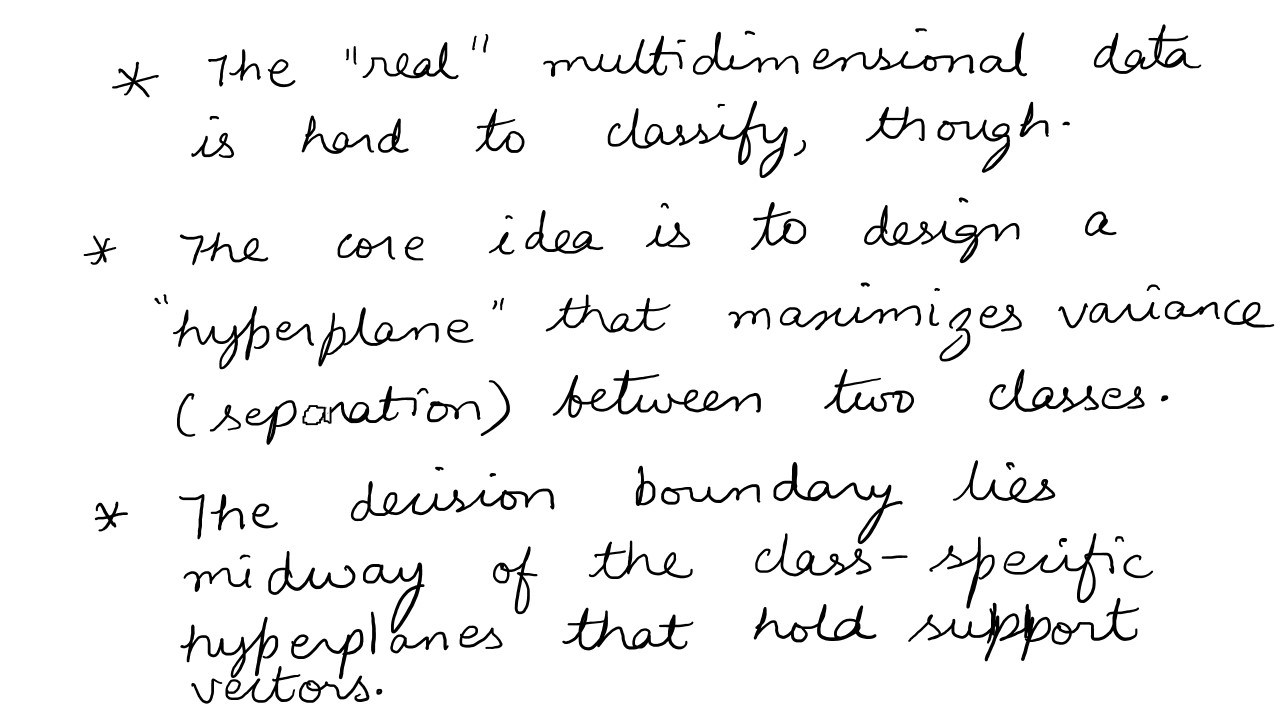 * The "real" multidimensional data
is hard to classify, though.
* The core idea is to design a
"hyperplane" that maximizes variance
(separation) between two classes.
* The decision boundary lies
midway of the class-specific
hyperplanes that hold support
vectors.